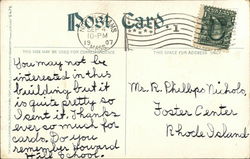 Post Card
SEP 4
10-PM
1907
THIS SIDE MAY BE USED FOR CORRESPONDENCE
THIS SPACE FOR
You may not be
interested in this
building but it is
quite pretty so
I sent it. Thanks
ever so much for
cards. Do you
remember Howard
Hall School.
Mr. R. Phillips Nichols,
Foster Center
Rhode Island